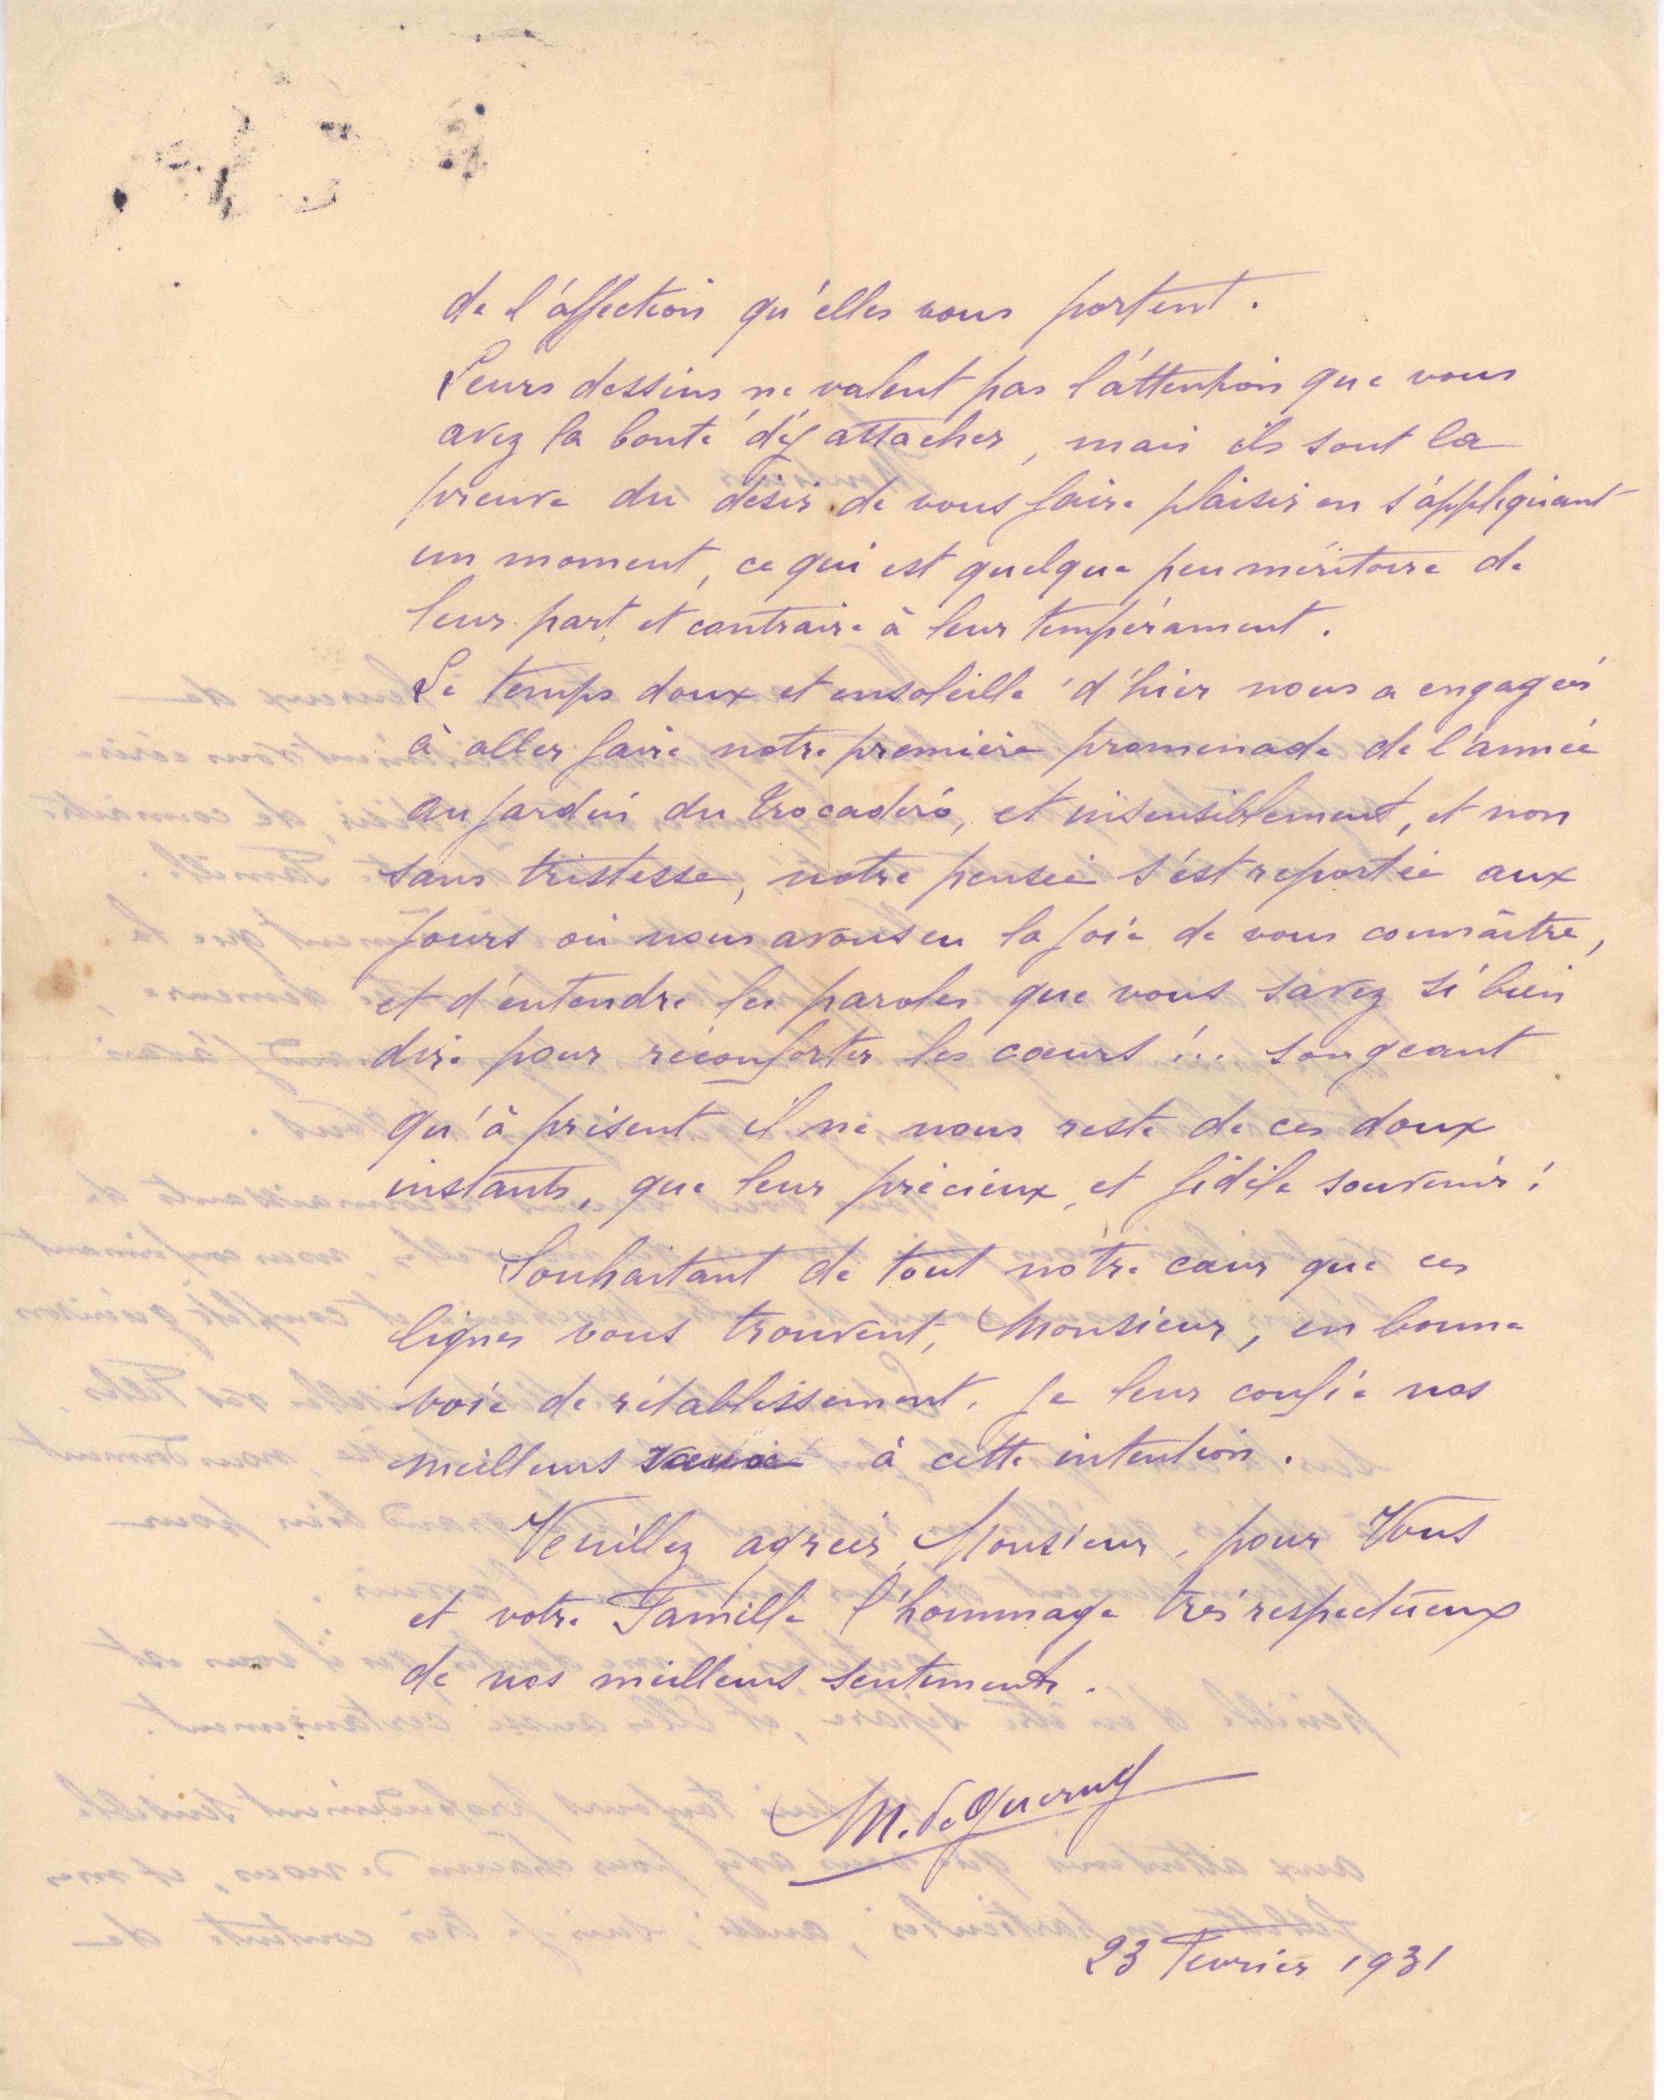 de l'affection qu'elles vous portent.
Leurs dessins ne valent pas l'attention que vous
avez la bonté d'y attacher, mais ils sont la
preuve du désir de vous faire plaisir en s'appliquant
un moment, ce qui est quelque peu méritoire de
leur part, et contraire à leur tempérament.
Le temps doux et ensoleillé d'hier nous a engagés
à aller faire notre première promenade de l'année
au jardin du Trocadéro, et insensiblement, et non
sans tristesse, notre pensée s'est reportée aux
jours où nous avons eu la joie de vous connaître,
et d'entendre les paroles que vous savez si bien
dire pour réconforter les cœurs !... songeant
qu'à présent il ne nous reste de ces doux
instants, que leur précieux, et fidèle souvenir !
Souhaitant de tout notre cœur que ces
lignes vous trouvent, Monsieur, en bonne
voie de rétablissement, je leur confie nos
meilleurs vœux à cette intention.
Veuillez agréer, Monsieur, pour Vous
et votre Famille l'hommage très respectueux
de nos meilleurs sentiments.
M. de
23 Février 1931